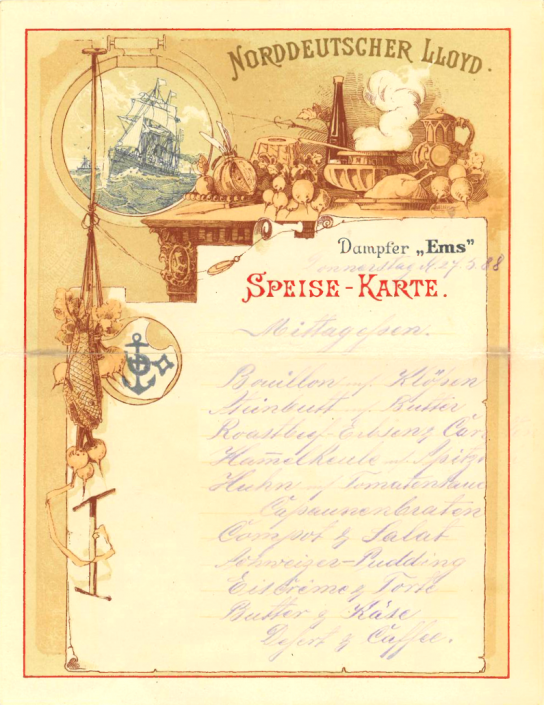 NORDDEUTSCHER LLOYD.
Dampfer „Ems"
Donnerstag 88
SPEISE-KARTE.
Mittagessen.
Bouillon mit Klösen
Steinbutt Butter
Roastbeef Erbsen &
Hammelkeule mit
Huhn mit Tomatensauce
Capaunenbraten
Compot & Salat
Schweizer-Pudding
Eiscrème & Torte
Butter & Käse
Desert & Caffee.